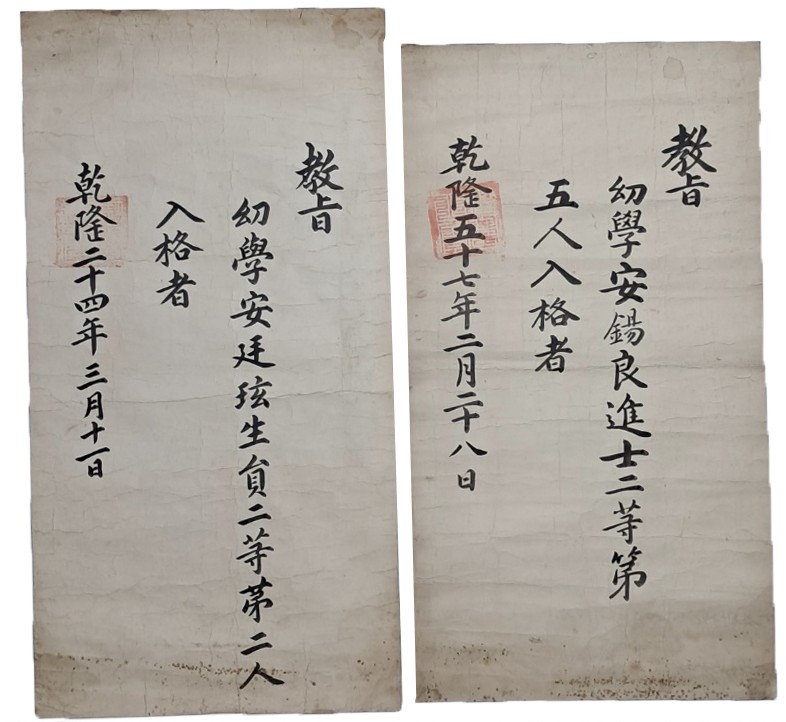 教旨
幼學安錫良進士二等第
五人入格者
乾隆五十七年二月二十八日
教旨
幼學安廷玹生員二等第二人
入格者
乾隆二十四年三月十一日